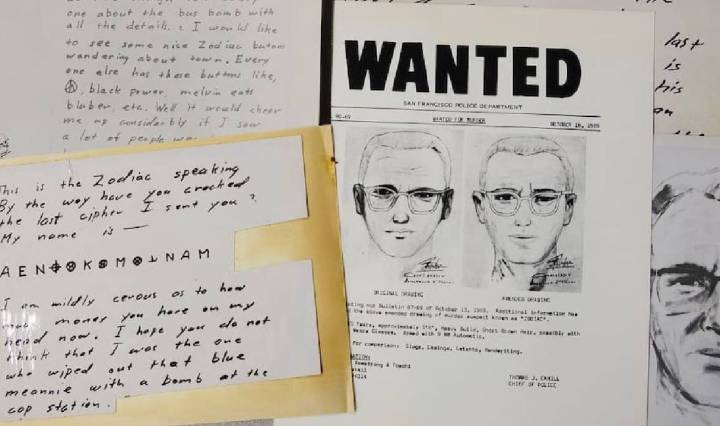 one about the bus bomb with
all the details. I would like
to see some nice Zodiac butons
wandering about town. Every
one else has these buttons like,
black power, melvin eats
bluber, etc. Well it would cheer
me up considerbly if I saw
a lot of people
This is the Zodiac speaking
By the way have you cracked
the last cipher I sent you?
My name is —
AEN⌖⊗K⊗M⊗⅃NAM
I am mildly cerous as to how
much money you have on my
head now. I hope you do not
think that I was the one
who wiped out that blue
meannie with a bomb at the
cop station.
WANTED
SAN FRANCISCO POLICE DEPARTMENT
WANTED FOR MURDER
OCTOBER 18, 1969
ORIGINAL DRAWING
AMENDED DRAWING
our Bulletin 87-69 of October 13, 1969. Additional information has
the above amended drawing of murder suspect known as "ZODIAC".
Years, approximately Heavy Build, Short Brown Hair, possibly with
Glasses. Armed with 9 MM Automatic.
for comparison: Slugs, Casings, Latents, Handwriting.
Armstrong & Toschi
THOMAS J. CAHILL
CHIEF OF POLICE
last
is
his
an